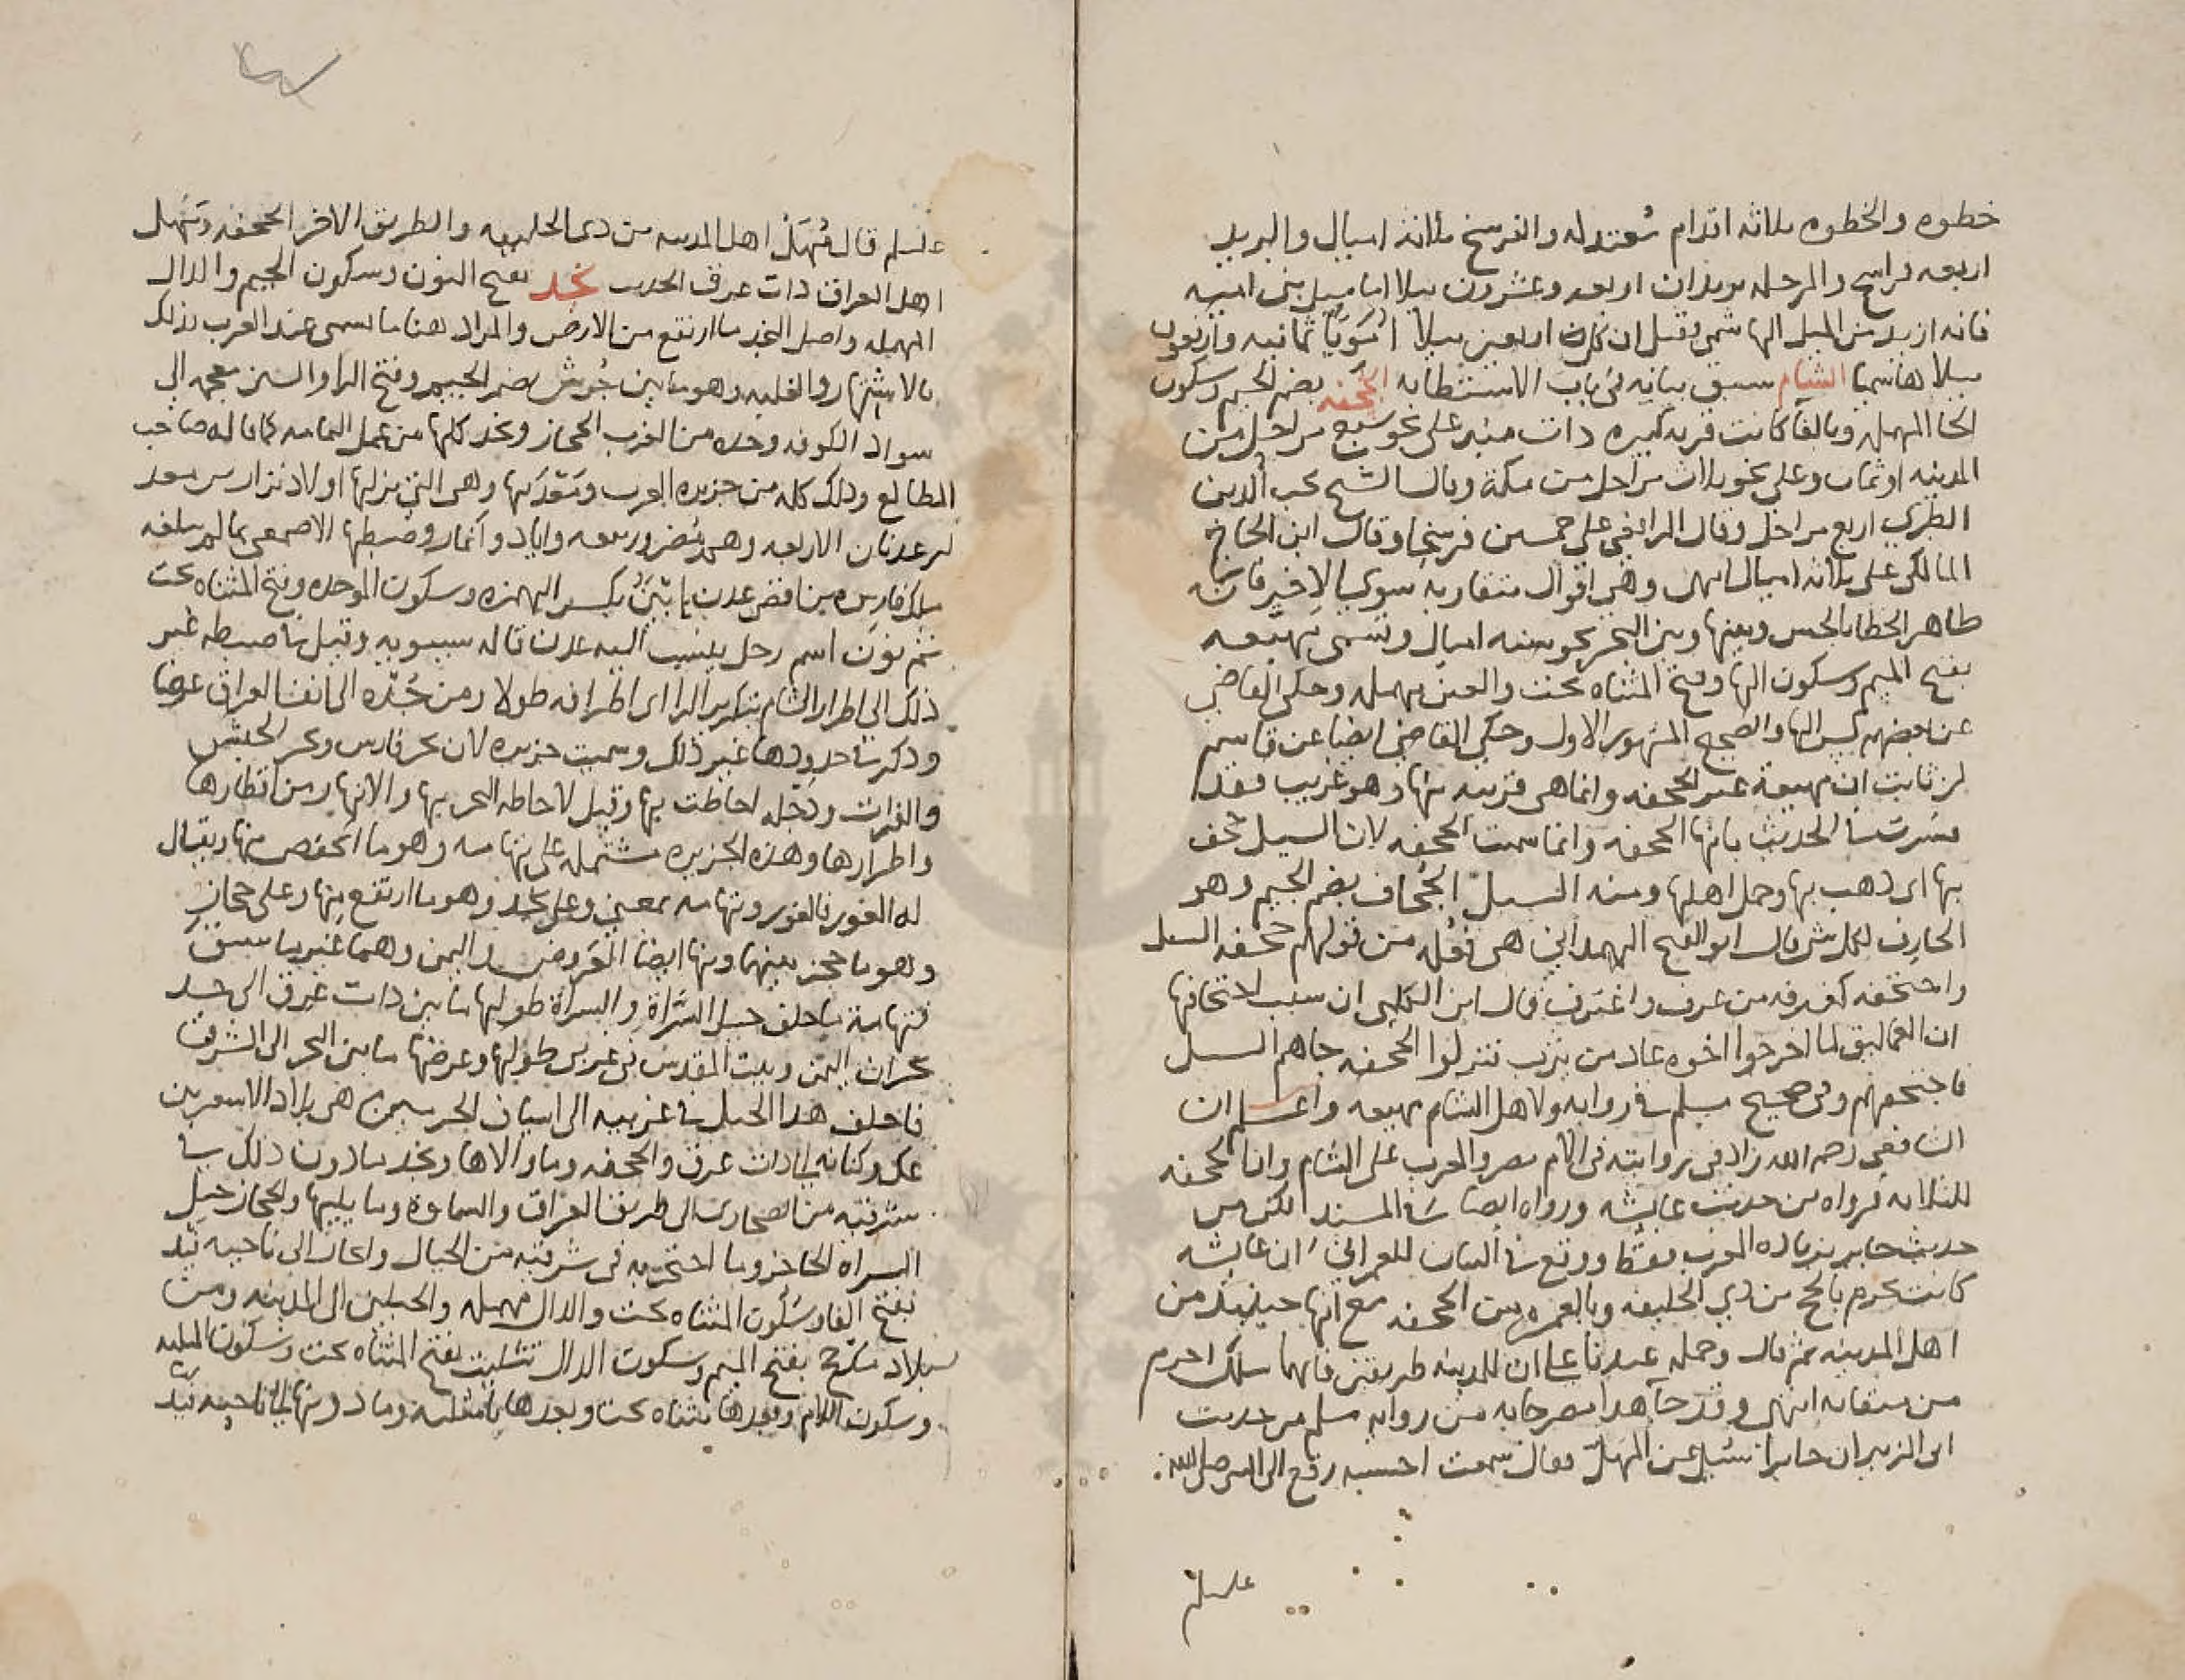 خطوه والخطوه ثلاثه اقدام معتدله والفرسخ ثلاثة اميال والبريد
اربعه فراسخ والمرحله بريدان اربعه وعشرون ميلا اما ميل بني اميه
فانه ازيد من الميل الهاشمي وقيل ان كل اربعين ميلا امويا ثمانيه واربعون
ميلا هاشميا الشام سبق بيانه في باب الاستطابه الجحفه بضم الجيم وسكون
الحا المهمله وبالفا كانت قريه كبيره ذات منبر على نحو سبع مراحل من
المدينه او ثمان وعلى نحو ثلاث مراحل من مكة وقال الشيخ محب الدين
الطبري اربع مراحل وقال الرافعي على خمسين فرسخا وقال ابن الحاج
المالكي على ثلاثه اميال انتهى وهي اقوال متقاربه سوى الاخير فانه
ظاهر الخطا بالحس وبينها وبين البحر نحو سته اميال وتسمى مهيعه
بفتح الميم وسكون الها وفتح المثناه تحت والعين مهمله وحكى القاضي
عن بعضهم كسر الها والصحيح المشهور الاول وحكى القاضي ايضا عن قاسم
بن ثابت ان مهيعة غير الجحفه وانما هي قريبه منها وهو غريب فقد
فسرت في الحديث بانها الجحفه وانما سميت الجحفه لان السيل جحف
بها اى ذهب بها وحمل اهلها ومنه السيل الجُحاف بضم الجيم وهو
الجارف لكل شي قال ابو الفتح الهمداني هي فُعله من قولهم جحفه السيل
واجتحفه كغرفه من غرف واغترف قال ابن الكلبي ان سبب اجتحافها
ان العماليق لما اخرجوا اخوه عاد من يثرب نزلوا الجحفه جاهم السيل
فاجتحفهم وفي صحيح مسلم في روايه ولاهل الشام مهيعه واعلم ان
الشافعي رحمه الله زاد في روايته في الام مصر والمغرب على الشام وان الجحفه
للثلاثه فرواه من حديث عايشه ورواه ايضا في المسند لكن من
حديث جابر بزياده المغرب فقط ووقع في البيان للعمراني ان عايشه
كانت تحرم بالحج من ذي الحليفه وبالعمره من الجحفه مع انها حينئذ من
اهل المدينه ثم قال وحمله عندنا على ان للمدينه طريقين فايهما سلك احرم
من ميقاته انتهى وقد جا هذا مصرحا به من روايه مسلم من حديث
ابي الزبير ان جابرا سئل عن المهل فقال سمعت احسبه رفع الى النبي صلى الله
عليه وسلم
عليه وسلم قال مُهَلّ اهل المدينه من ذي الحليفه والطريق الاخر الجحفه ومُهَل
اهل العراق ذات عرق الحديث نجد بفتح النون وسكون الجيم والدال
المهمله واصل النجد ما ارتفع من الارض والمراد هنا ما يسمى عند العرب بذلك
بالاشتهار والغلبه وهو ما بين جُرش بضم الجيم وفتح الرا والشين معجمه الى
سواد الكوفه وحده من الغرب الحجاز ونجد كلها من عمل اليمامه كما قاله صاحب
المطالع وذلك كله من جزيره العرب ومَعْدَنها وهى التي نزلها اولاد نزار بن معد
بن عدنان الاربعه وهم مُضر وربيعه واياد وأنمار وضبطها الاصمعي بما لم يبلغه
ملك فارس من اقصى عدن إبْيَنْ بكسر الهمزه وسكون الموحده وفتح المثناه تحت
ثم نون اسم رجل ينسب اليه عدن قاله سيبويه وقيل في ضبطه غير
ذلك الى اطرار الشام بتكرير الرا اى اطرافه طولا ومن جُدّه الى العراق عرضا
وذكر في حدودها غير ذلك وسميت جزيره لان بحر فارس وبحر الحبش
والفرات ودجله احاطت بها وقيل لاحاطه البحر بها والانهار من اقطارها
واطرارها وهذه الجزيره مشتمله على تهامه وهو ما انخفض منها ويقال
له الغور فالغور وتهامه بمعنى وعلى نجد وهو ما ارتفع منها وعلى حجاز
وهو ما حجز بينهما ومنها ايضا العَروض واليمن وهما غير ما سبق
فتهامة ما خلف جبل السَّراة والسراة طولها ما بين ذات عرق الى حد
نجران اليمن وبيت المقدس في غربي طولها وعرضها ما بين البحر الى الشرف
فاخلف هذا الجبل في غربيه الى اسياف البحر هى بلاد الاشعريين
عك وكنانه الى ذات عرق والجحفه وما والاها ونجد ما دون ذلك في
شرقيه من الصحارى الى طريف العراق والسماوة وما يليها والحجاز جبل
السراه الحاجز وما احتجز به في شرقيه من الجبال وانحاز الى ناحيه فَيد
بفتح الفا وسكون المثناه تحت والدال مهمله والجبلين الى المدينه ومن
بلاد مذحج بفتح الميم وسكون الدال تثليث بفتح المثناه تحت وسكون المثلثه
وسكون اللام وبعدها مثناه تحت وبعدها ثا مثلثه وما دونها الى ناحيه فَيد